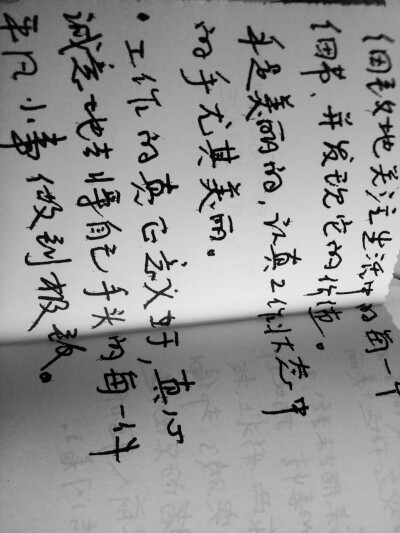 细致地关注生活中的每一个
细节，并发现它的价值。
手是美丽的，认真工作状态中
的手尤其美丽。
·工作的真正意义在于，真心
诚意地去将自己手头的每一件
平凡小事做到极致。